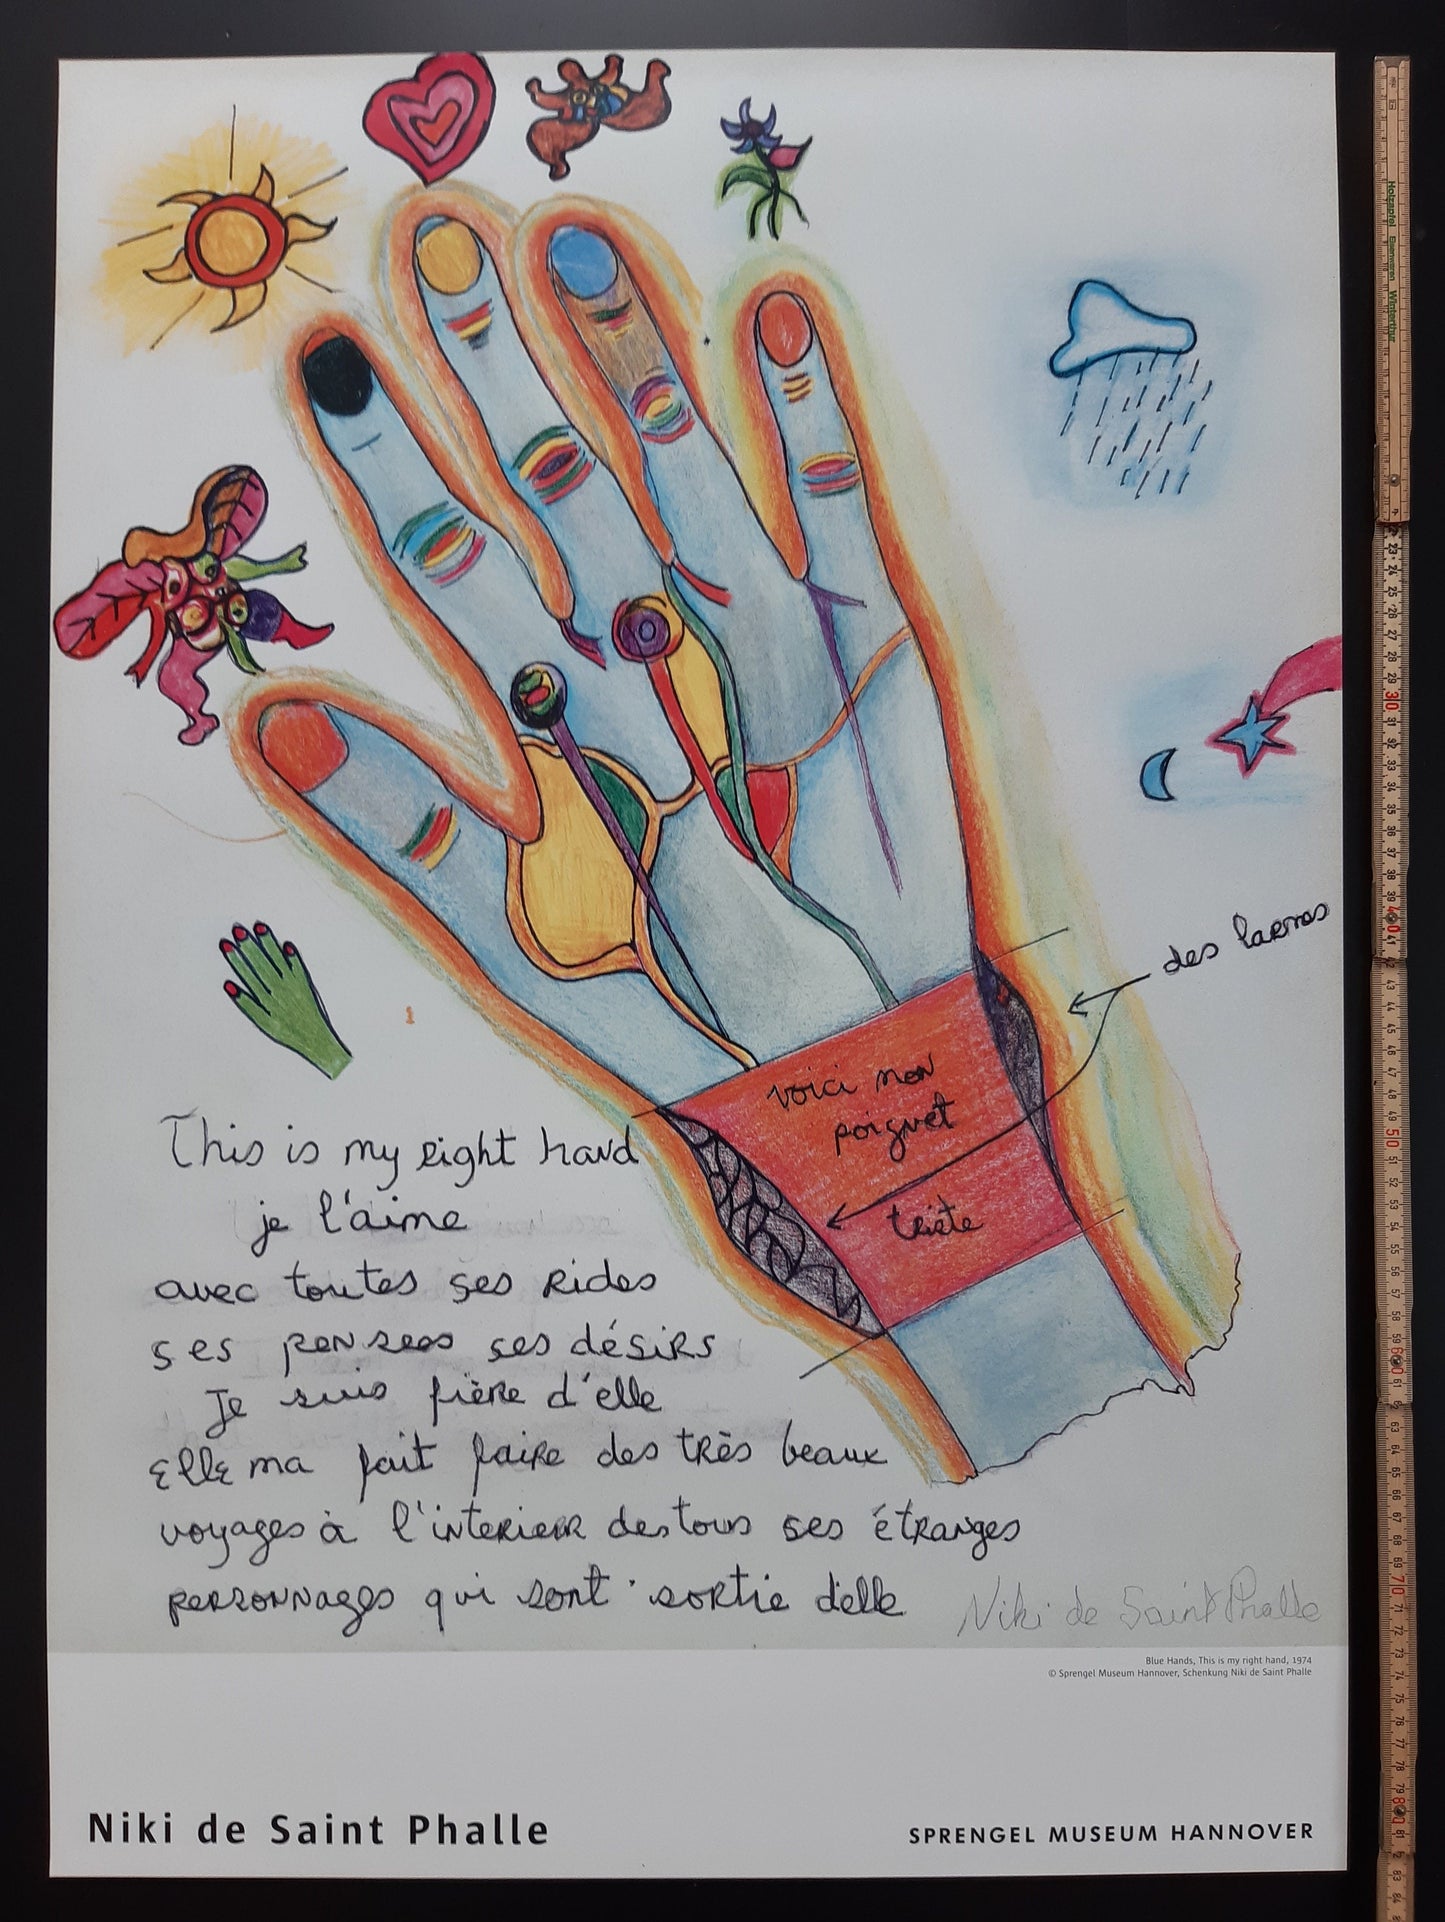 des larmes
voici mon
poignet
triste
This is my right hand
je l'aime
avec toutes ses rides
ses pensees ses désirs
Je suis fière d'elle
Elle ma fait faire des très beaux
voyages à l'interieur des tous ses étranges
personnages qui sont sortie d'elle
Niki de Saint Phalle
Blue Hands, This is my right hand, 1974
© Sprengel Museum Hannover, Schenkung Niki de Saint Phalle
Niki de Saint Phalle
SPRENGEL MUSEUM HANNOVER
Holzapfel Eisenwaren Winterthur